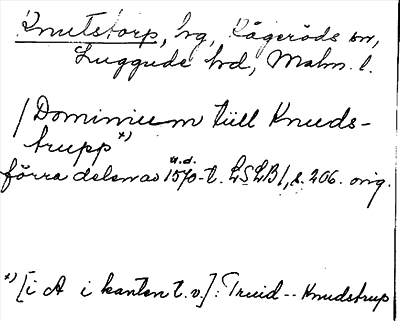 Knutstorp, hg, Kågeröds sn,
Luggude hd, Malm. l.
/Dominium tüll Knuds-
trupp *)
förra delen av u.d. 1570-t. LSLB1, s. 206. orig.
*) [i A i kanten t.v.]: Truid -- Knudstrup